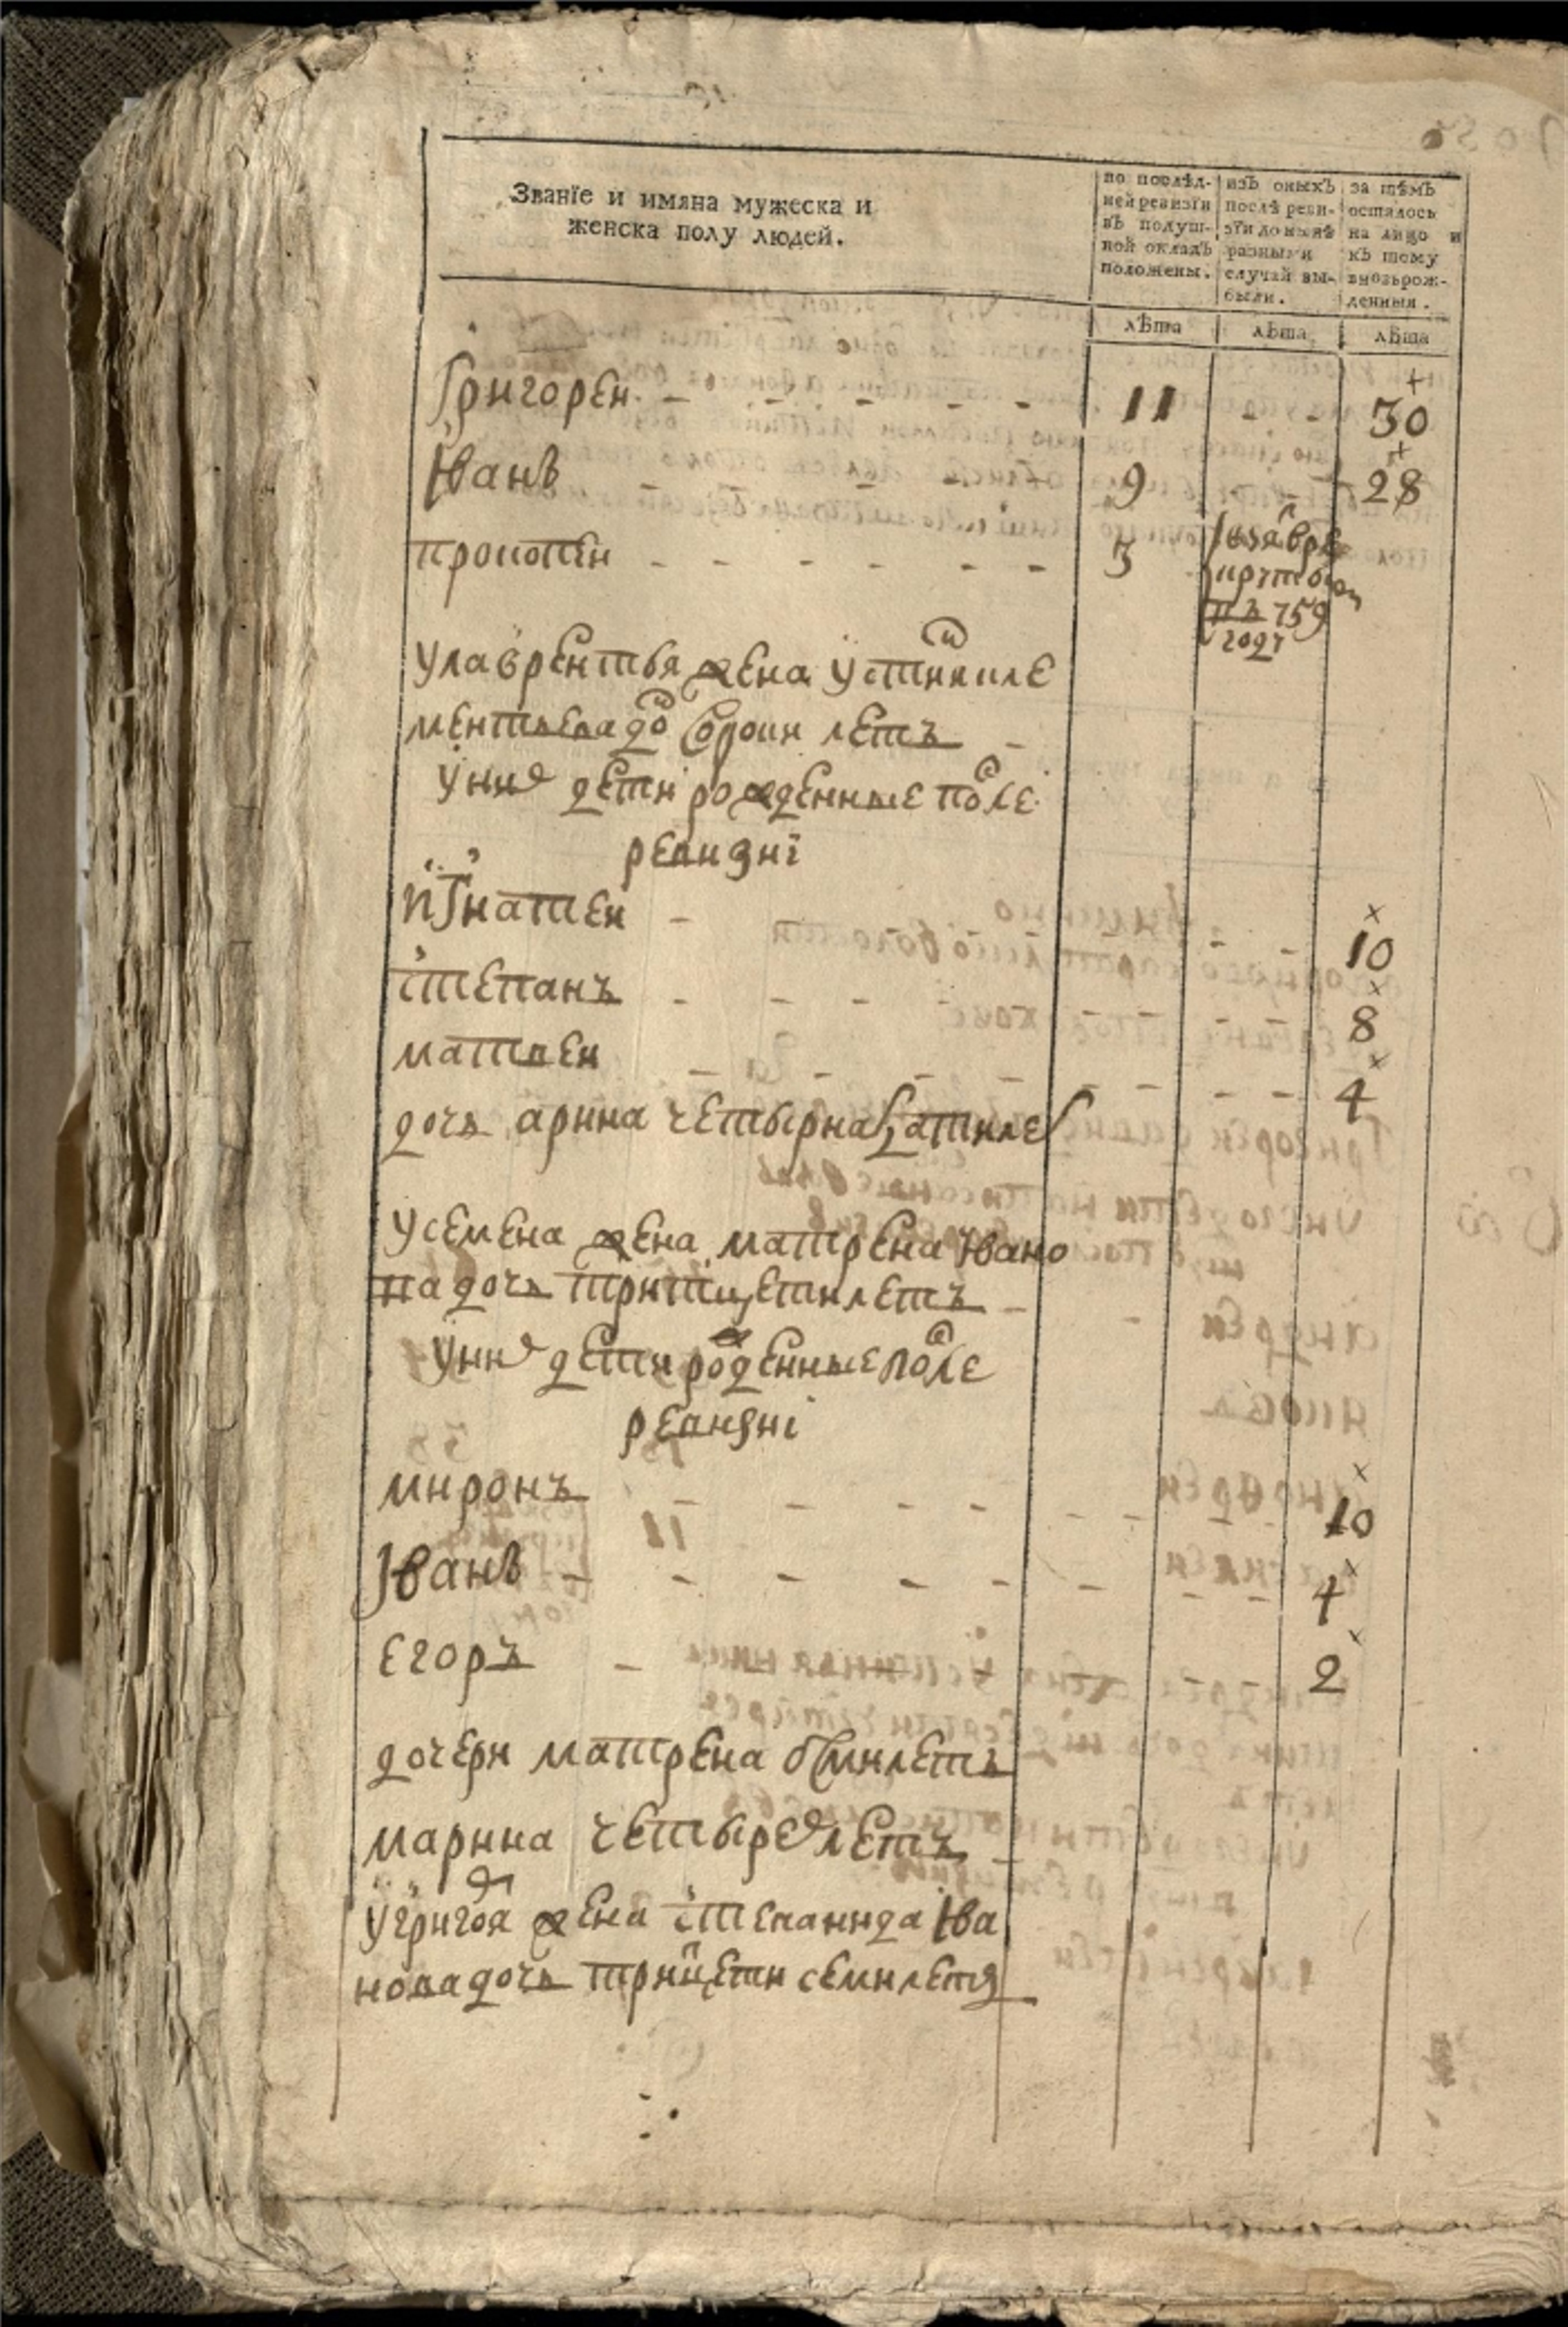 Званїе и имяна мужеска и
женска полу людей.
по послѣд-
ней ревизїи
въ подуш-
ной окладъ
положены.
изъ оныхъ
послѣ реви-
зїи до нынѣ
разными
случаи вы-
были.
за тѣмъ
осталось
на лицо и
къ тому
вновьрож-
денныя.
лѣта лѣта лѣта
Григореи 11 30
Иванъ 9 28
прокотеи 3
въ 759
году
у лаврентья жена устиня кле
ментьева до сороки летъ
у них дети рожденные после
ревизиї
игнатеи 10
степанъ 8
матвеи 4
дочь арина четырнадцати лет
у семена жена матрена ивано
ва дочь тритцети летъ
у них дети рожденные после
ревизиї
миронъ 10
Иванъ 4
егоръ 2
дочери матрена осми летъ
марина четырех летъ
у григоя жена степанида ива
нова дочь трицети семи летъ